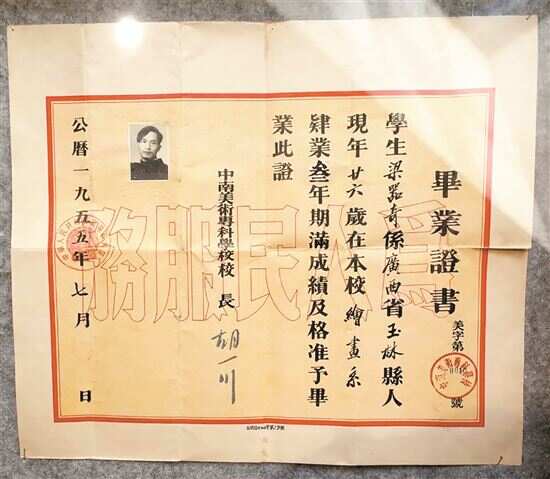 畢業證書
美字第 號
學生梁器奇係廣西省玉林縣人
現年廿六歲在本校繪畫系
肄業叁年期滿成績及格准予畢
業此證
中南美術專科學校校長 胡一川
公曆一九五五年七月 日
為人民服務